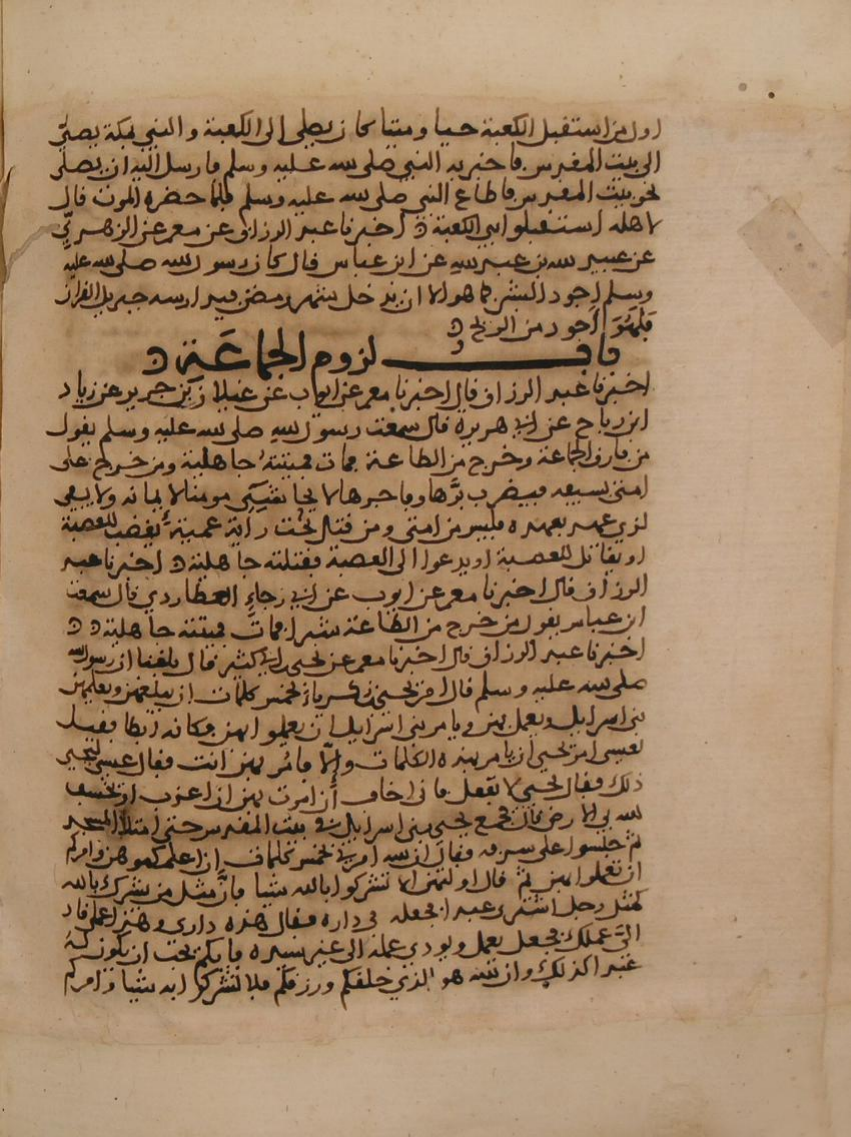 اول من استقبل الكعبة حيا وميتا كان يصلي الى الكعبة والنبي بمكة يصلي
الى بيت المقدس فاخبر به النبي صلى الله عليه وسلم فارسل اليه ان يصلي
نحو بيت المقدس فاطاع النبي صلى الله عليه وسلم فلما حضره الموت قال
لاهله استقبلوا بي الكعبة اخبرنا عبد الرزاق عن معمر عن الزهري
عن عبيد الله بن عبد الله عن ابن عباس قال كان رسول الله صلى الله عليه
وسلم اجود البشر فما هو الا ان يدخل شهر رمضن فيدارسه جبريل القران
فلهو اجود من الريح
باب لزوم الجماعة
اخبرنا عبد الرزاق قال اخبرنا معمر عن ايوب عن غيلان بن جرير عن زياد
ابن رباح عن ابي هريرة قال سمعت رسول الله صلى الله عليه وسلم يقول
من فارق الجماعة وخرج من الطاعة فمات فميتته جاهلية ومن خرج على
امتي بسيفه فيضرب برها وفاجرها لا يحاشي مومنا لايمانه ولا يفي
لذي عهد بعهده فليس من امتي ومن قتل تحت راية عمية يغضب للعصبة
او يقاتل للعصبة او يدعوا الى العصبة فقتلته جاهلية اخبرنا عبد
الرزاق قال اخبرنا معمر عن ايوب عن ابي رجاء العطاردي قال سمعت
ابن عباس يقول من خرج من الطاعة شبرا فمات فميتته جاهلية
اخبرنا عبد الرزاق قال اخبرنا معمر عن يحيى بن ابي كثير قال بلغنا ان رسول الله
صلى الله عليه وسلم قال امر يحيى بن زكريا بخمس كلمات ان يعمل بهن ويعلمهن
بني اسرايل ويعمل بهن ويامر بني اسرايل ان يعملوا بهن فكانه ابطا فقيل
لعيسى امر يحيى ان يامر بهذه الكلمات والا فامر بهن انت فقال عيسى ليحيى
ذلك فقال يحيى لا تفعل فاني اخاف ان امرت بهن ان اعذب او يخسف
الله بي الارض قال فجمع يحيى بني اسرايل في بيت المقدس حتى امتلا المسجد
ثم جلسوا على شرفه فقال ان الله امرني بخمس كلمات ان اعلمكموهن وامركم
ان تعملوا بهن ثم قال اولهن الا تشركوا بالله شيا فان مثل من يشرك بالله
كمثل رجل اشترى عبدا فجعله في داره فقال هذه داري وهذا عملي فاد
الي عملك فجعل يعمل ويودي عمله الى غير سيده فايكم يحب ان يكون له
عبدا كذلك وان الله هو الذي خلقكم ورزقكم فلا تشركوا به شيا وامركم